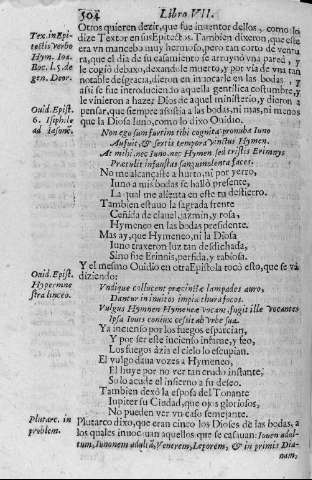 504 Libro VII.
Otros quieren dezir, que fue inuentor dellos, como lo
Tex. in Epi- dize Textor en sus Epitectos. Tambien dizeron, que este
tectis Verbo era vn mancebo muy hermoso, pero tan corto de ventu
Hym. Ioa. ra, que el dia de su casamiento se arruynò vna pared, y
Boc. l. 5. de le cogiò debaxo, dexandole muerto, y por via de vna tan
gen. Deor. notable desgracia, dieron en inuocarle en las bodas, y
assi se fue introduciendo aquella gentilica costumbre, y
le vinieron a hazer Dios de aquel ministerio, y dieron a
Ouid. Epist. pensar, que siempre assistia a las bodas, ni mas, ni menos
6. Isiphile que la Diosa Iuno, como lo dixo Ouidio.
ad Iasone. Non ego sum furtim tibi cognita: pronuba Iuno
Aufuit, & sertis tempora vinctus Hymen.
At mihi nec Iuno, nec Hymen sed tristis Erinnys
Prætulit infaustas sanguinolenta faces.
No me alcançaste a hurto, ni por yerro,
Iuno a mis bodas se hallò presente,
La qual me assienta en este tu destierro.
Tambien estauo la sagrada frente
Ceñida de clauel, jazmin, y rosa,
Hymeneo en las bodas presidente.
Mas ay, que Hymeneo, ni la Diosa
Iuno traxeron luz tan desdichada,
Sino fue Erinnis, perfida, y rabiosa.
Ouid. Epist. Y el mesmo Ouidio en otra Epistola tocò esto, que se và
Hypermne diziendo:
stra linceo. Vndique collucent præcinctæ lampades auro,
Dantur in inuitos impia thura focos.
Vulgus Hymen Hymenæe vocant, fugit ille vocantes
Ipsa Iouis coniux cessit ab vrbe sua.
Ya inciensio por los fuegos esparcian,
Y por ser este inciensio infame, y feo,
Los fuegos àzia el cielo lo escupian.
El vulgo daua vozes a Hymeneo,
El huye por no ver tan crudo instante,
Solo acude el infierno a su deseo.
Tambien dexò la esposa del Tonante
Iupiter su Ciudad, que ojos gloriosos,
No pueden ver vn caso semejante.
Plutarc. in Plutarco dixo, que eran cinco los Dioses de las bodas, a
problem. los quales inuocauan aquellos que se casauan: Iouem adul-
tum, Iunonem adultã, Venerem, Leporem, & in primis Dia-
nam,